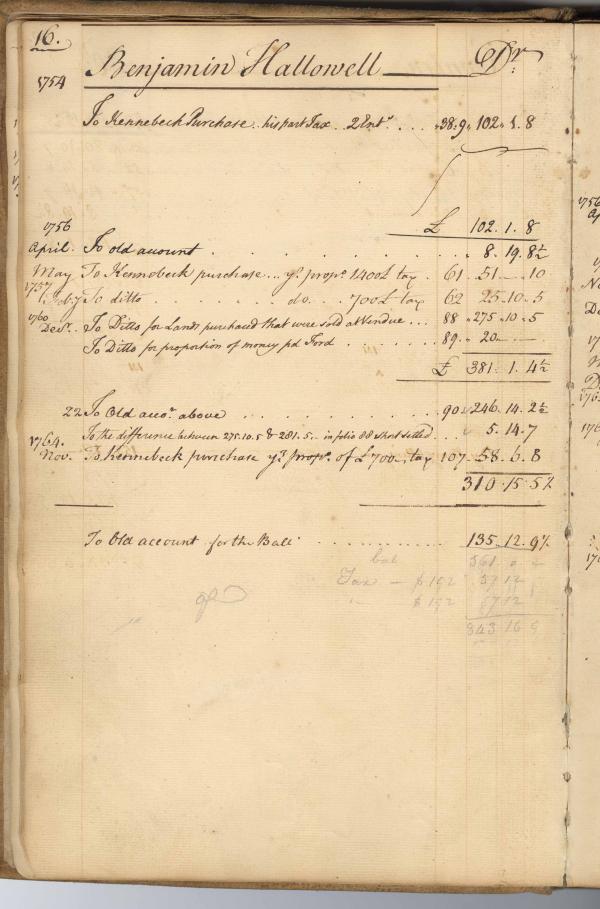 16.
Benjamin Hallowell Dr
1754
To Kennebeck Purchase.. his part Tax.. 2 Entr. .... 38:9. 102.1.8
£ 102.1.8
1756
April. To old account . . . . . . . 8.19.8½
May To Kennebeck purchase... yr. propn. 1400£ tax . 61. 51.—.10
1757
Feb.y To ditto . . . . . do. . . . 700£ tax 62 25.10.5
1760
Decr. To Ditto for Lands purchased that were sold at Vendue... 88 275.10.5
To Ditto for proportion of money pd Ford . . . . . 89. 20.—.—
£ 381.1.4½
22 To Old acco.t above . . . . . . 90 246.14.2½
To the difference between 275.10.5 & 281.5.. in folio 88 short settled 5.14.7
1764.
Nov. To Kennebeck purchase yr. propn. of £700. tax 107. 58.6.8
310.15.5½
To Old account for the Balle . . . . . . 135.12.9½
bal 561
Tax — $192 57 12
$192 57 12